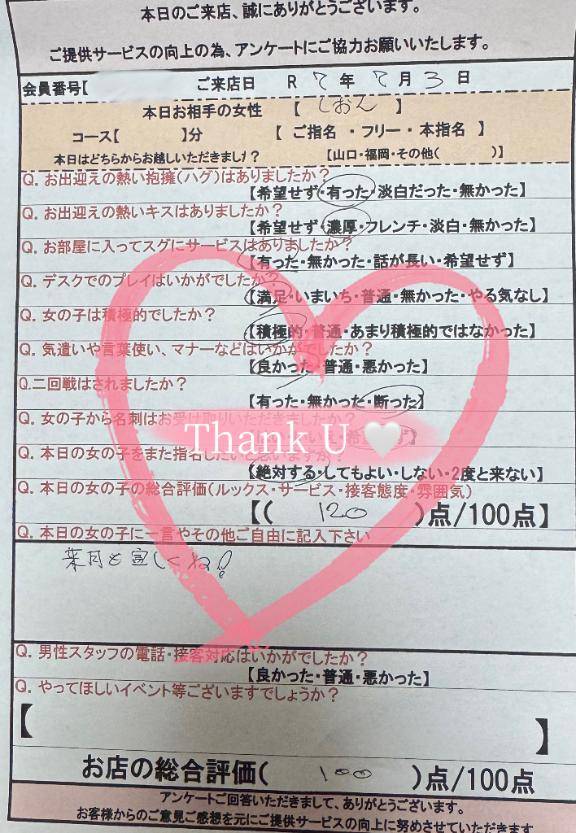 本日のご来店、誠にありがとうございます。
ご提供サービスの向上の為、アンケートにご協力お願いいたします。
会員番号【 ご来店日 R 7 年 7 月 3 日
本日お相手の女性 【 しおん 】
コース【 】分 【 ご指名 ・ フリー ・ 本指名 】
本日はどちらからお越しいただきました? 【山口・福岡・その他( )】
Q. お出迎えの熱い抱擁(ハグ)はありましたか?
【希望せず・有った・淡白だった・無かった】
Q. お出迎えの熱いキスはありましたか?
【希望せず・濃厚・フレンチ・淡白・無かった】
Q. お部屋に入ってスグにサービスはありましたか?
【有った・無かった・話が長い・希望せず】
Q. デスクでのプレイはいかがでしたか?
【満足・いまいち・普通・無かった・やる気なし】
Q. 女の子は積極的でしたか?
【積極的・普通・あまり積極的ではなかった】
Q. 気遣いや言葉使い、マナーなどはいかがでしたか?
【良かった・普通・悪かった】
Q.二回戦はされましたか?
【有った・無かった・断った】
Q. 女の子から名刺はお受け取りいただきましたか?
Thank U 🤍
Q. 本日の女の子をまた指名したいと思いますか?
【絶対する・してもよい・しない・2度と来ない】
Q. 本日の女の子の総合評価(ルックス・サービス・接客態度・雰囲気)
【( 120 )点/100点】
Q. 本日の女の子に一言やその他ご自由に記入下さい
来月も宜しくね!
Q. 男性スタッフの電話・接客対応はいかがでしたか?
【良かった・普通・悪かった】
Q. やってほしいイベント等ございますでしょうか?
【 】
お店の総合評価( 100 )点/100点
アンケートご回答いただきまして、ありがとうございます。
お客様からのご意見ご感想を元にご提供サービスの向上に努めさせていただきます